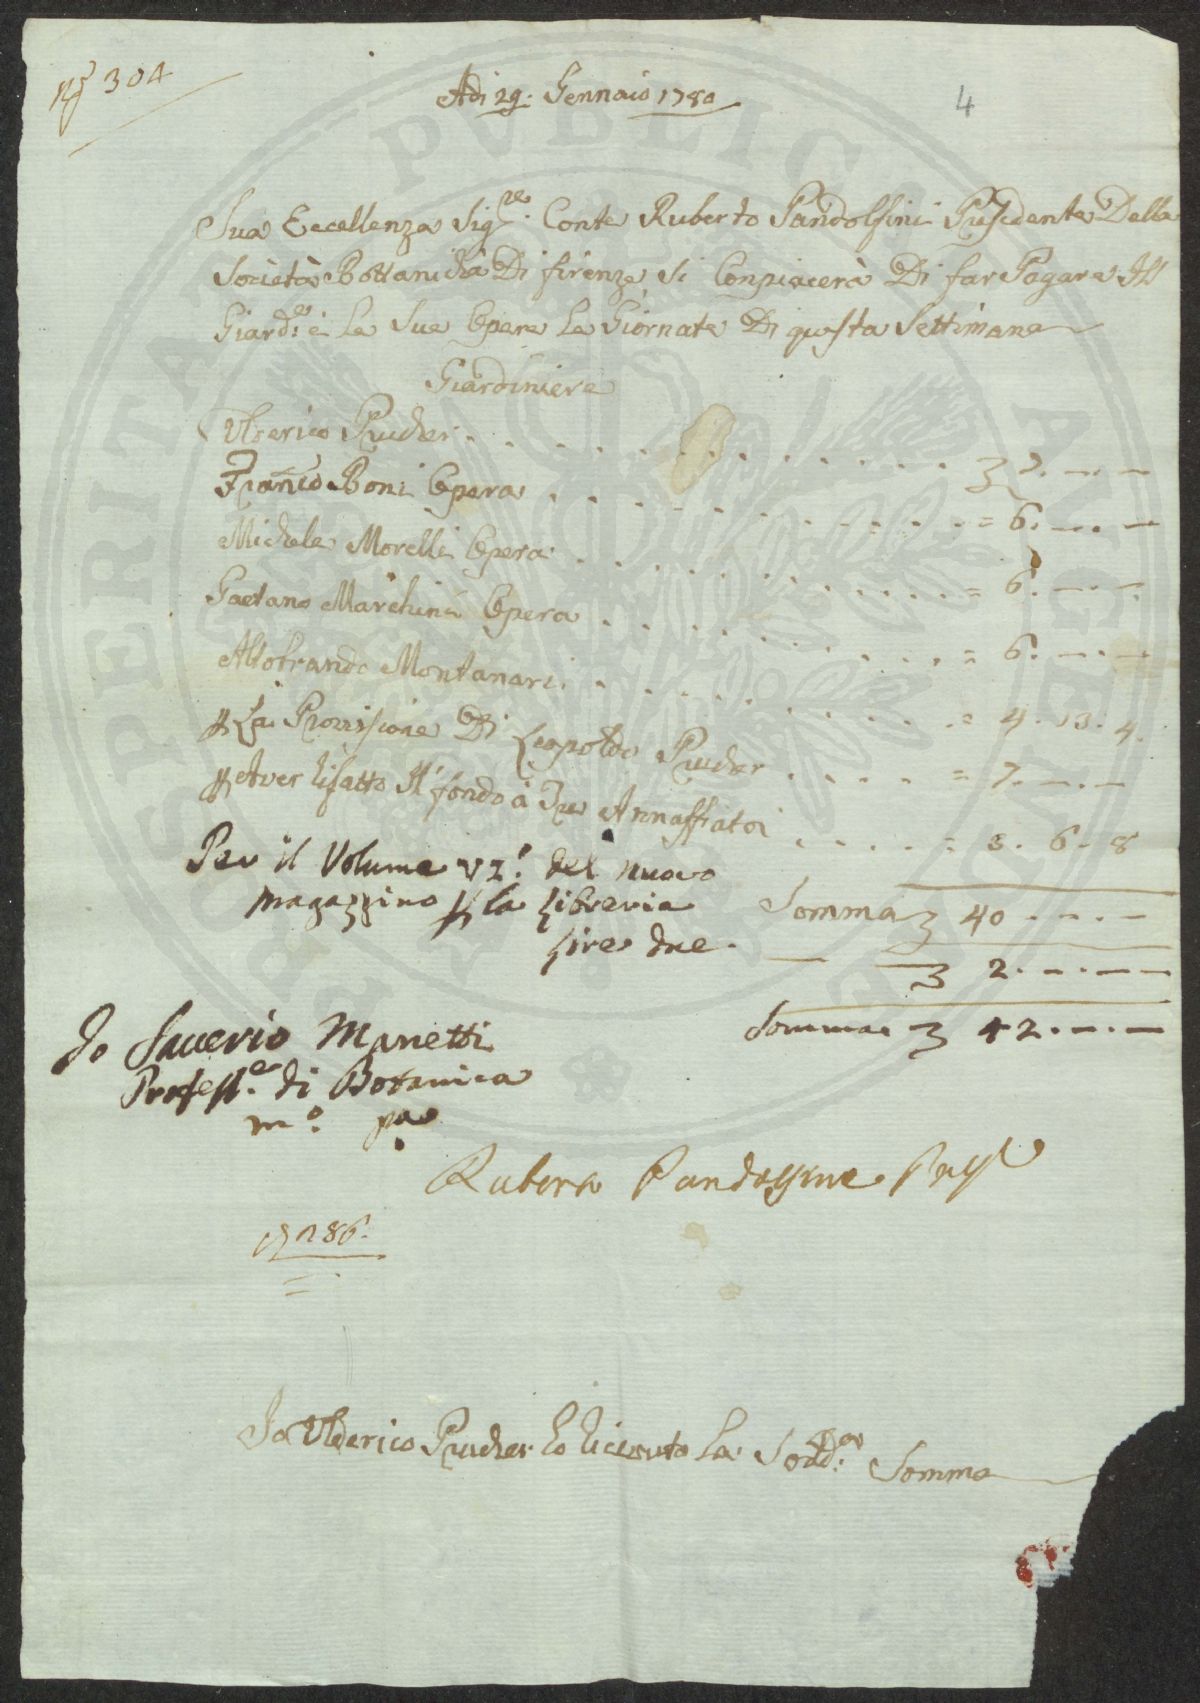 N° 304
Adi 29. Gennaio 1780
4
Sua Eccellenza Sig.re Conte Ruberto Pandolfini Presedente Della
Società Bottanicha Di firenze si Conpiacerà Di far Pagare Il
Giard.e è Le Sue Opere Le Giornate Di questa Settimana
Giardiniere
Ulderico Prucher . . . . . . . . . . . . 7. — . —
Franco Boni Opera . . . . . . . . . . . = 6. — . —
Michele Morelli Opera . . . . . . . . . . = 6. — . —
Gaetano Marchini Opera . . . . . . . . . = 6. — . —
Aldobrando Montanari . . . . . . . . . = 4. 13. 4.
p La Provisione Di Leopoldo Prucher . . . . . = 7. — . —
p Aver rifatto Il fondo à Tre Annaffiatoi . . . . . = 3. 6. 8
Per il Volume VI.° del nuovo
magazzino p la Libreria
Lire due.
Somma 40 . — . —
2 . — . —
Somma 42 . — . —
Io Saverio Manetti
Profess.e di Botanica
m.o pa
Ruberto Pandolfini Pres.
286.
Io Ulderico Prucher ho ricevuto La Sodd.a Somma
PROSPERITATI PUBLICAE AUGENDAE